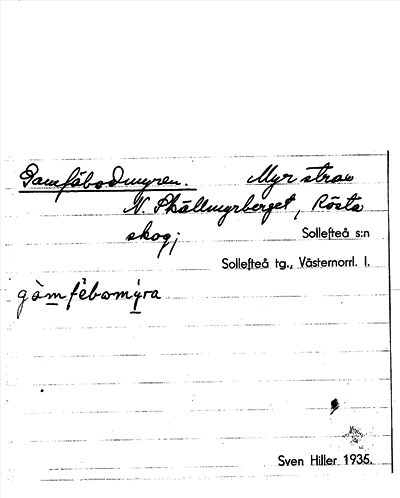 Gamfäbodmyren. Myr strax
N. Skällmyrberget, Rösta
skog; Sollefteå s:n
Sollefteå tg., Västernorrl. l.
gàmfèbωmýra
Sven Hiller 1935.